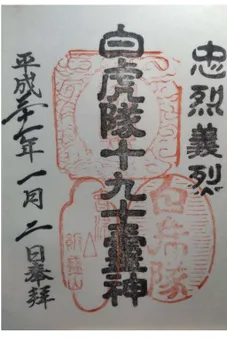 忠烈義烈
白虎隊十九士霊神
平成三十一年一月二日奉拝
白虎隊
飯盛山